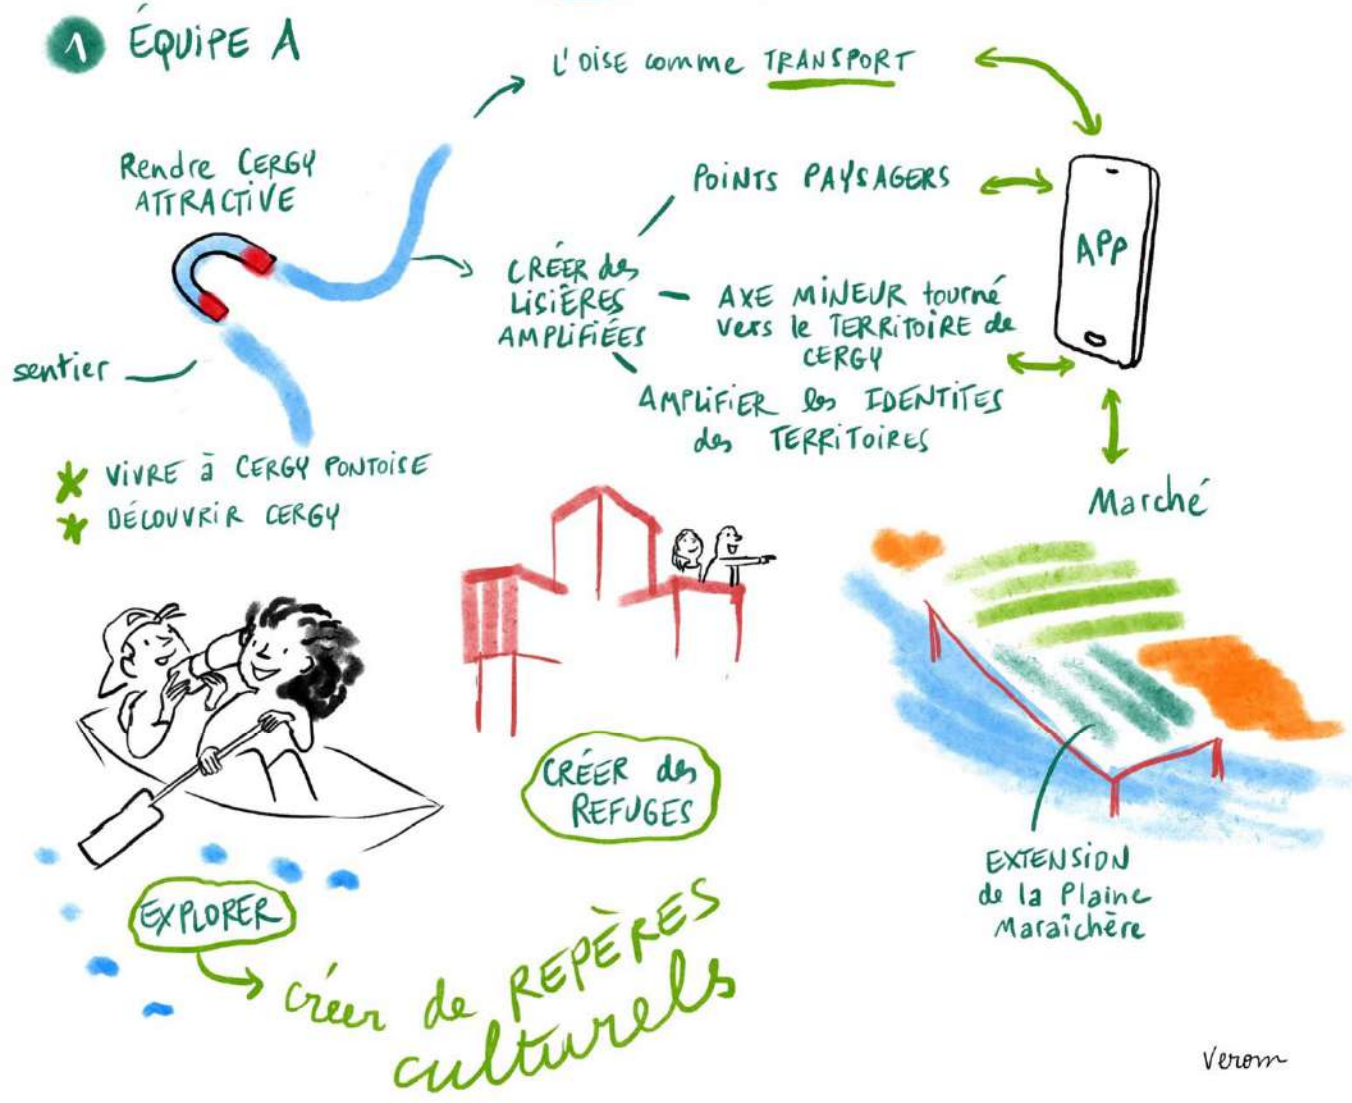 1 ÉQUIPE A
L'OISE comme TRANSPORT
Rendre CERGY
ATTRACTIVE
POINTS PAYSAGERS
APP
CRÉER des
LISIÈRES
AMPLIFIÉES
AXE MINEUR tourné
vers le TERRITOIRE de
CERGY
sentier
AMPLIFIER les IDENTITES
des TERRITOIRES
VIVRE à CERGY PONTOISE
DÉCOUVRIR CERGY
Marché
CRÉER des
REFUGES
EXTENSION
de la Plaine
Maraîchère
EXPLORER
créer de REPÈRES
culturels
Verom